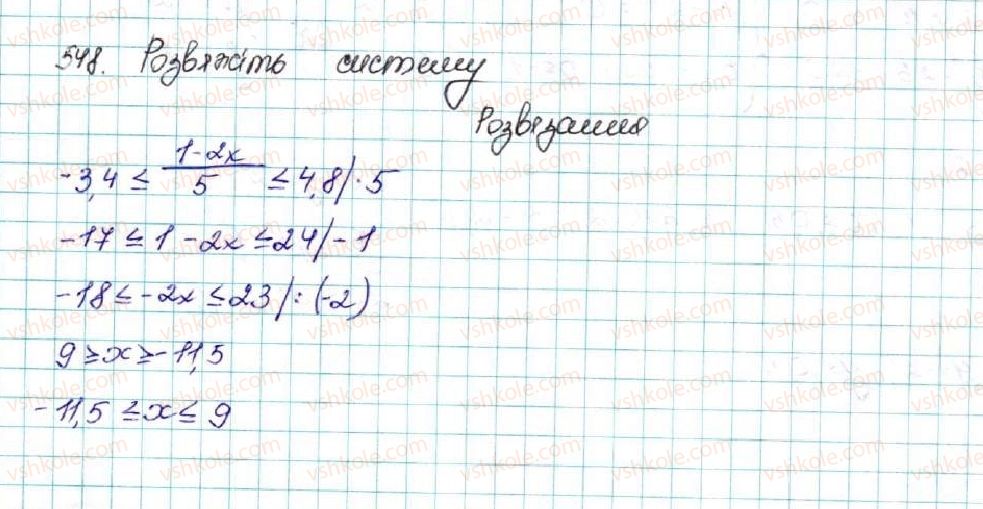 548. Розвяжіть систему
Розвязання
-3,4 ≤ (1-2x)/5 ≤ 4,8 / · 5
-17 ≤ 1 - 2x ≤ 24 / - 1
-18 ≤ -2x ≤ 23 / : (-2)
9 ≥ x ≥ -11,5
-11,5 ≤ x ≤ 9
vshkole.com